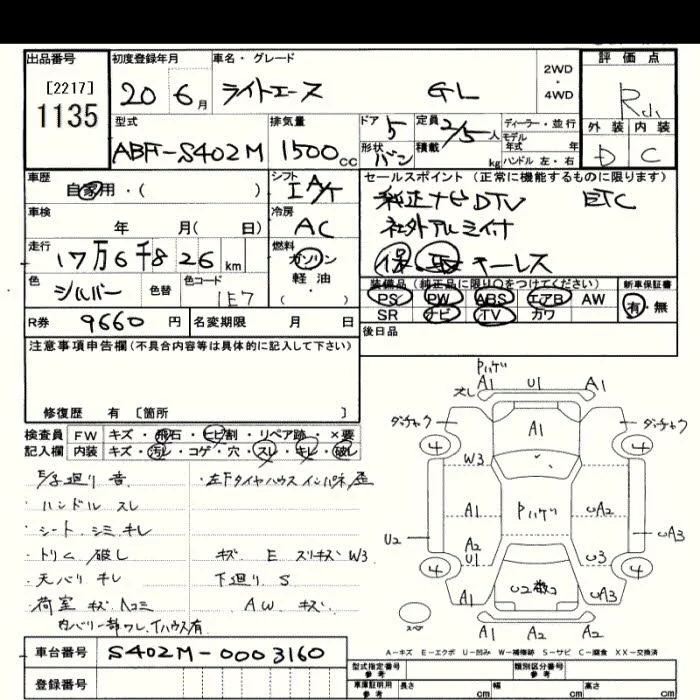 出品番号 初度登録年月 車名・グレード 2WD・4WD 評価点
[2217]
1135
20 6月 ライトエース GL
型式 排気量 ドア 5 定員 2/5人 ディーラー・並行
モデル年式 年 外装 内装
ABF-S402M 1500cc 形状 バン 積載 kg ハンドル 左・右 D C
車歴 シフト セールスポイント (正常に機能するものに限ります)
自家用・( ) IA/T 純正ナビDTV ETC
車検 冷房 社外アルミ付
年 月( 日) AC
走行 燃料 保 取 キーレス
17万6千826km ガソリン
軽油
( )
色 シルバー 色替 色コード 1E7
装備品 (純正品に限り○をつけてください) 新車保証書
PS PW ABS エアB AW 有・無
SR ナビ TV カワ
R券 9660円 名変期限 月 日 後日品
注意事項申告欄(不具合内容等は具体的に記入して下さい)
修復歴 有 [箇所 ]
検査員 FW キズ・飛石・ヒビ割・リペア跡・×要
記入欄 内装 キズ・汚レ・コゲ・穴・スレ・キレ・破レ
E/g廻り音 ・左Fタイヤハウス インパネ歪
・ハンドル スレ
・シート、シミ、キレ
・トリム 破レ キズ E スリキズ W3
・天バリ キレ 下廻り S
・荷室 キズ、ヘコミ AW キズ
内バリ一部ワレ、
Pハゲ
A1 U1 A1
ダッチャク ダッチャク
4 A1 4
W3
A1 Pハゲ UA2
U2 A2 UA3
U1 U3
4 4
A1 U2数コ UA3
スペア A1 A2 A2
A-キズ E-エクボ U-凹み W-補修跡 S-サビ C-腐食 XX-交換済
車台番号 S402M-0003160
登録番号
型式指定番号 参考 類別区分番号 参考
車庫証明用 参考 長さ cm 幅 cm 高さ cm